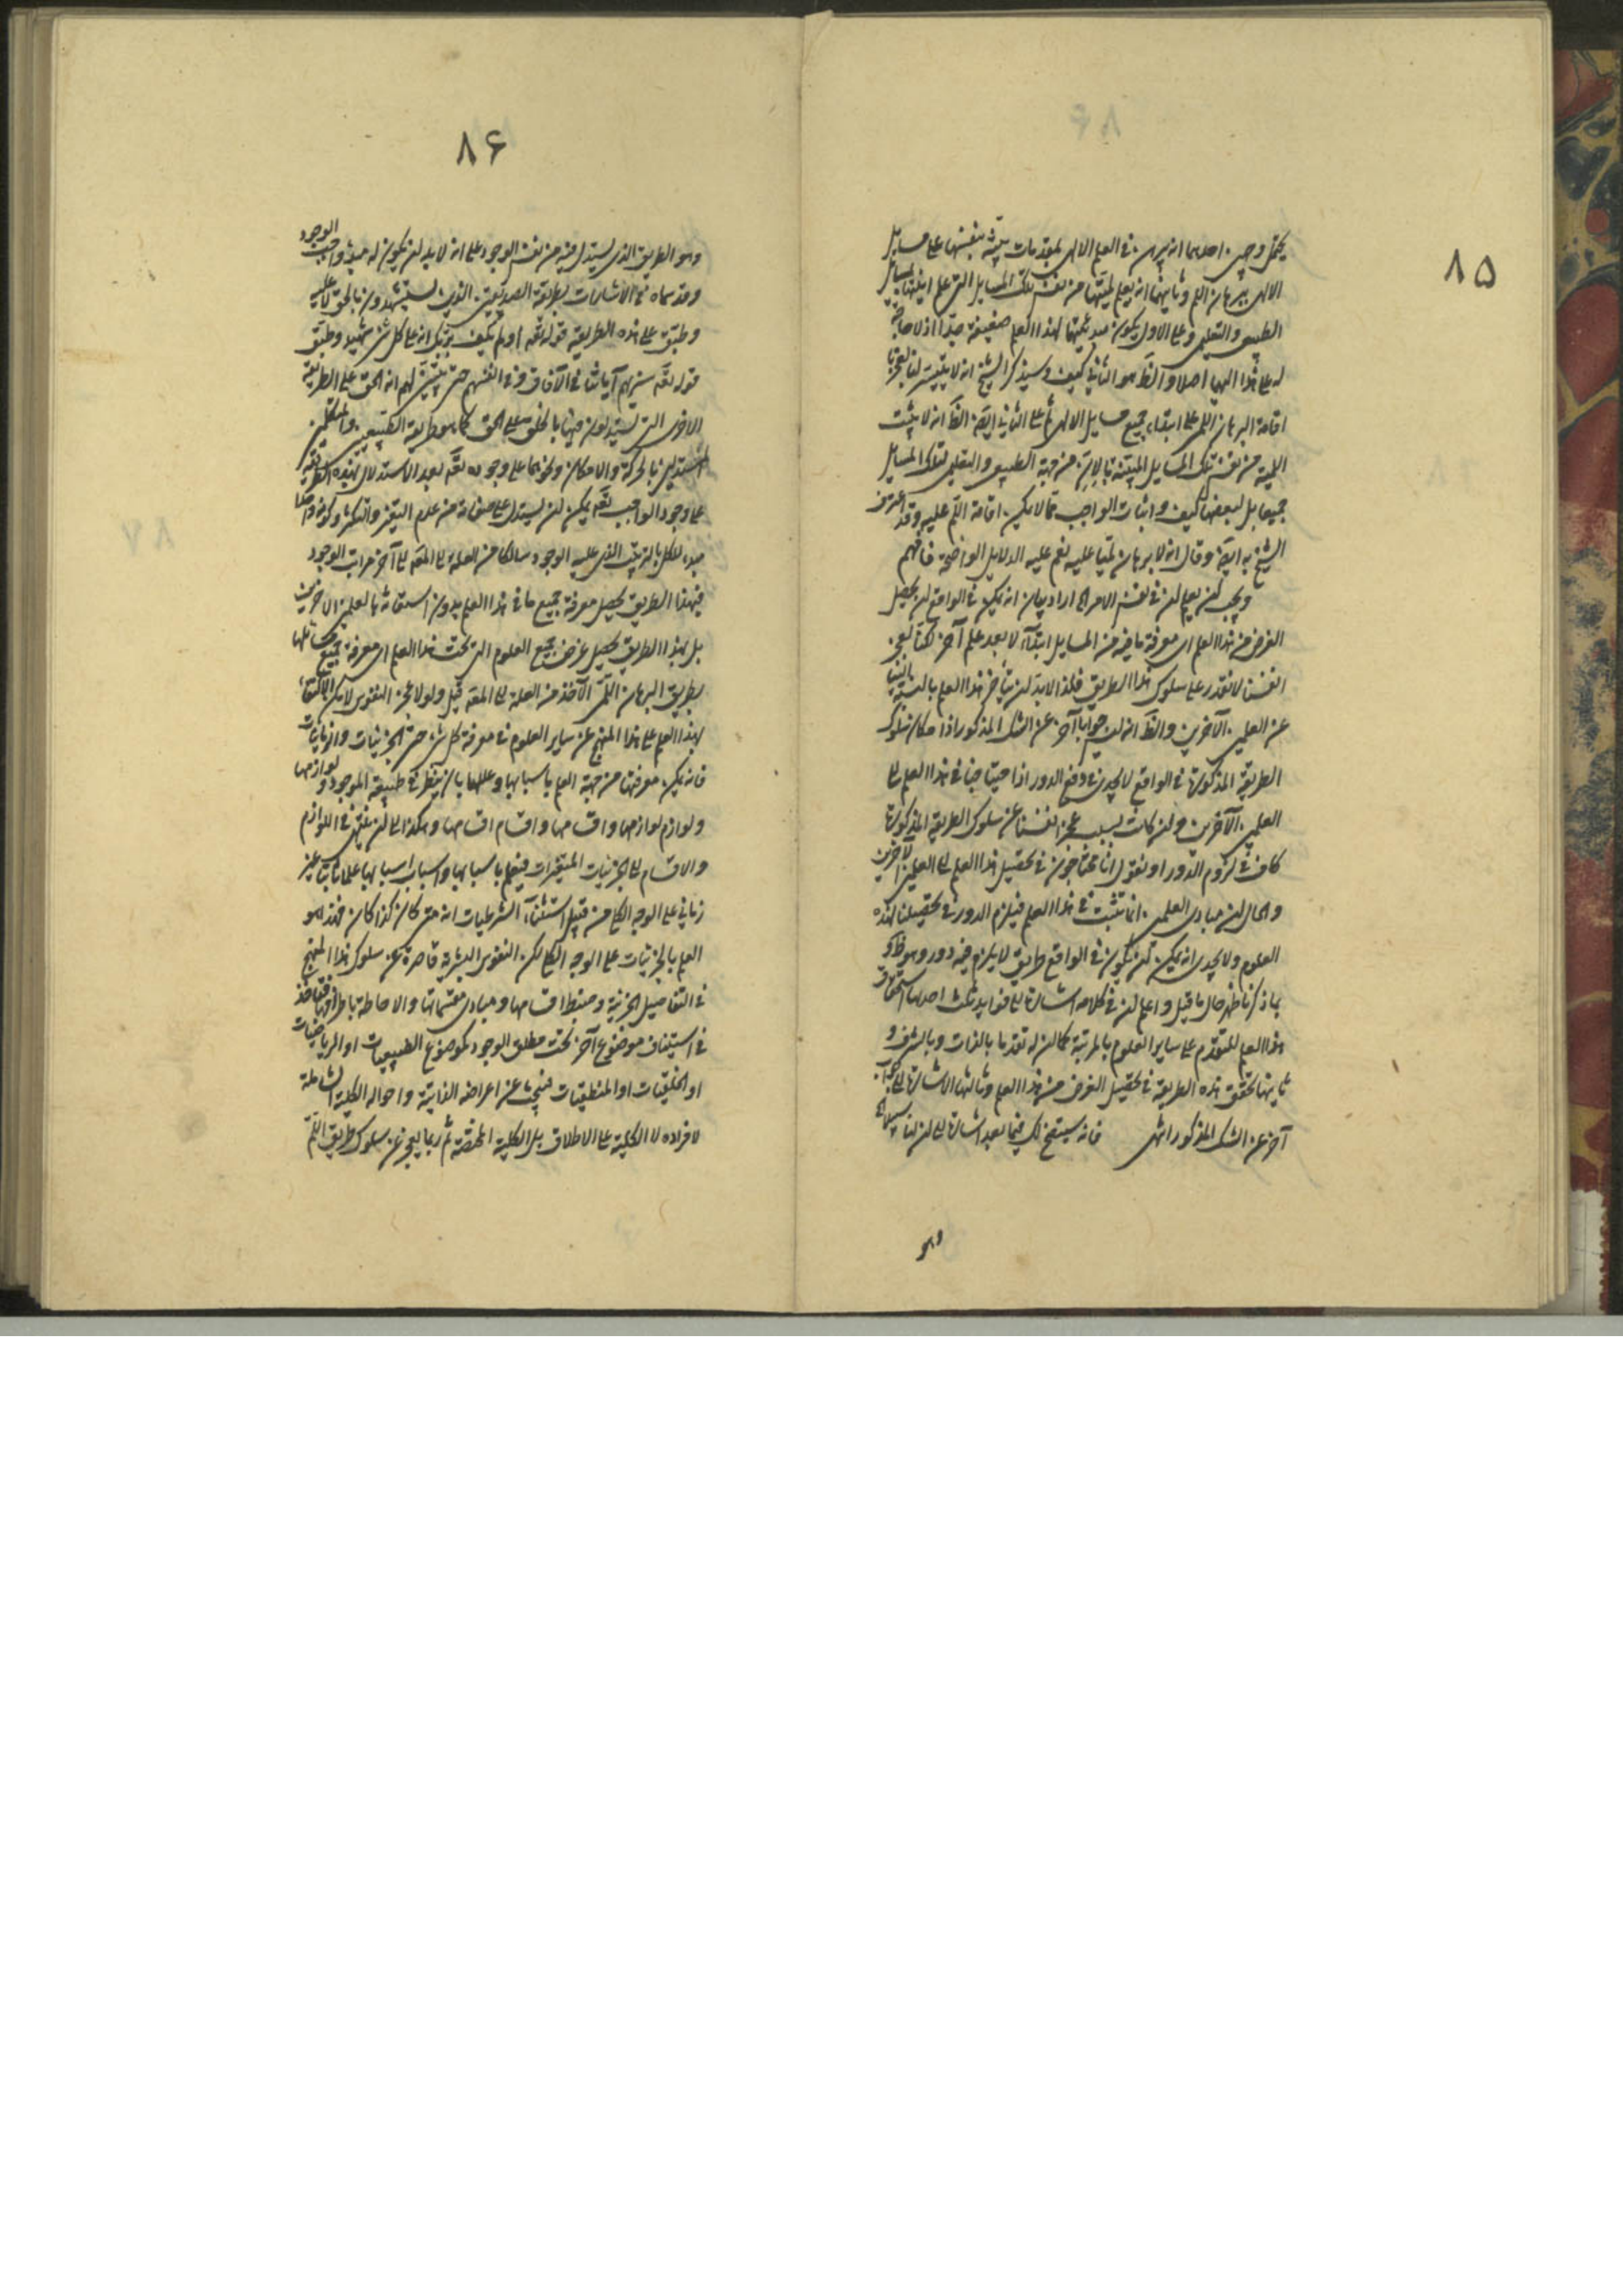 ۸۵
يحتمل وجهين احدهما انه يبرهن في العلم الالهى بمقدمات بينة بنفسها على مسايل
الالهى ببرهان اللم وثانيهما انه يعلم لميتها من نفس تلك المسايل التى علم انيتها بمسايل
الطبيعى والتعليمى وعلى الاول يكون مبدئيتها لهذا العلم ضعيفة جدا اذ لا حاجة
له على هذا اليها اصلا والظ هو الثانى كيف وسيذكر الشيخ انه لا يتيسر لنا لعجزنا
اقامة البرهان اللمى على ابتداء جميع مسايل الالهى ثم على الثانى ايضا الظ انه لا يثبت
اللمية من نفس تلك المسايل المبينة بالان من جهة الطبيعى والتعليمى لتلك المسايل
جميعا بل لبعضها كيف واثبات الواجب مما لا يمكن اقامة اللم عليه وقد اعترف
الشيخ به ايضا وقال انه لا برهان لميا عليه نعم عليه الدلايل الواضحة فافهم
ويجب ان يعلم ان في نفس الامر الخ اراد بيان انه يمكن في الواقع ان يحصل
الغرض من هذا العلم اى معرفة ما فيه من المسايل ابتداء لا بعد علم آخر لكنا لعجز
انفسنا لا نقدر على سلوك هذا الطريق فلذا لا بد ان يتأخر هذا العلم بالنسبة الينا
عن العلمين الآخرين والظ انه ليس جوابا آخر عن الشك المذكور اذ امكان سلوك
الطريقة المذكورة في الواقع لا يجدى في دفع الدور اذ احتياجنا في هذا العلم الى
العلمين الآخرين وان كانت بسبب عجز انفسنا عن سلوك الطريقة المذكورة
كاف في لزوم الدور او نقول انا محتاجون في تحصيل هذا العلم الى العلمين الآخرين
والحال ان مبادى العلمين انما تثبت في هذا العلم فيلزم الدور في تحصيلنا لهذه
العلوم ولا يجدى انه يمكن ان يكون في الواقع طريق لا يلزم فيه دور وهو ظ و
بما ذكرنا ظهر حال ما قيل واعلم ان في كلامه اشارة الى فوايد ثلث احدها استحقاق
هذا العلم للتقدم على ساير العلوم بالمرتبة كما ان له تقدما بالذات وبالشرف و
ثانيها تحقق هذه الطريقة في تحصيل الغرض من هذا العلم وثالثها الاشارة الى جواب
آخر عن الشك المذكور انتهى فانه سيتضح لك فيما بعد اشارة الى ان لنا سبيلا الخ
وهو
۸۶
وهو الطريق الذى يستدل فيه من نفس الوجود على انه لا بد ان يكون له مبدء واجب الوجود
وقد سماه في الاشارات بطريقة الصديقين الذين يستشهدون بالحق لا عليه
وطبق على هذه الطريقة قوله تعه اولم يكف بربك انه على كل شئ شهيد وطبق
قوله تعه سنريهم آياتنا في الآفاق وفي انفسهم حتى يتبين لهم انه الحق على الطريقة
الاخرى التى يستدلون فيها بالخلق على الحق كما هو طريقة الطبيعيين والمتكلمين
المستدلين بالحركة والامكان ونحوهما على وجوده تعه بعد الاستدلال بهذه الطريقة
على وجود الواجب تعه يمكن ان يستدل على صفاته من عدم التغير والتكثر وكونه واحدا
مبدء للكل بالترتيب الذى عليه الوجود سالكا من العلة الى المعه الى آخر مراتب الوجود
فبهذا الطريق يحصل معرفة جميع ما في هذا العلم بدون استعانة بالعلمين الاخرين
بل بهذا الطريق يحصل غرض جميع العلوم التى تحت هذا العلم اى معرفة جميع مسائلها
بطريق البرهان اللمى الآخذ من العلة الى المعه قيل ولولا عجز النفوس لامكن الاكتفاء
بهذا العلم على هذا المنهج عن ساير العلوم في معرفة كل شئ حتى الجزئيات والزمانيات
فانه يمكن معرفتها من جهة العلم باسبابها وعللها بان ينظر في طبيعة الموجود ولوازمها
ولوازم لوازمها واقسامها واقسام اقسامها وهكذا الى ان ينتهى في اللوازم
والاقسام الى الجزئيات المتغيرات فيعلم باسبابها واسباب اسبابها علما ثابتا غير
زمانى على الوجه الكلى من قبيل استثناء الشرطيات انه متى كان كذا كان كذا فهذا هو
العلم بالجزئيات على الوجه الكلى لكن النفوس البشرية قاصرة عن سلوك هذا المنهج
في التفاصيل الجزئية وضبط اقسامها ومبادى مقسماتها والاحاطة باطرافها فتأخذ
في استيناف موضوع آخر تحت مطلق الوجود كموضوع الطبيعيات او الرياضيات
او الخلقيات او المنطقيات فيبحث عن اعراضه الذاتية واحواله الكلية الشاملة
لافراده لا الكلية على الاطلاق بل الكلية المختصة ثم ربما يعجز عن سلوك طريق اللم